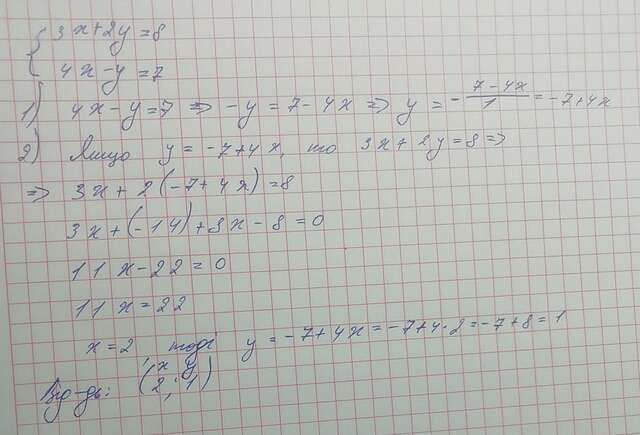 { 3x+2y=8
4x-y=7
1) 4x-y=7 => -y=7-4x => y = - (7-4x)/1 = -7+4x
2) Якщо y = -7+4x, то 3x+2y=8 =>
=> 3x+2(-7+4x)=8
3x+(-14)+8x-8=0
11x-22=0
11x=22
x=2, тоді y=-7+4x=-7+4·2=-7+8=1
x y
Від-дь: (2; 1)